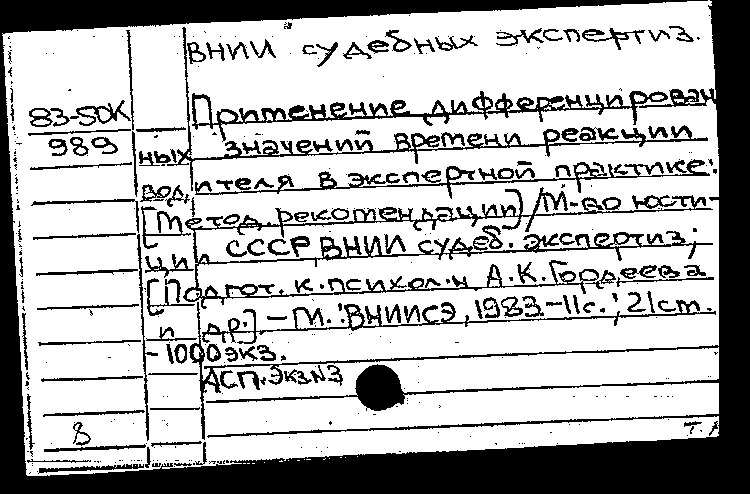 ВНИИ судебных экспертиз.
83-50К Применение дифференцирован
989 ных значений времени реакции
водителя в экспертной практике:
[Метод. рекомендации] / М-во юсти-
ции СССР, ВНИИ судеб. экспертиз;
[Подгот. к. психол. н. А.К. Гордеева
и др.]. - М.: ВНИИСЭ, 1983. - 11с.; 21см.
- 1000экз.
АСП. Экз N3
8